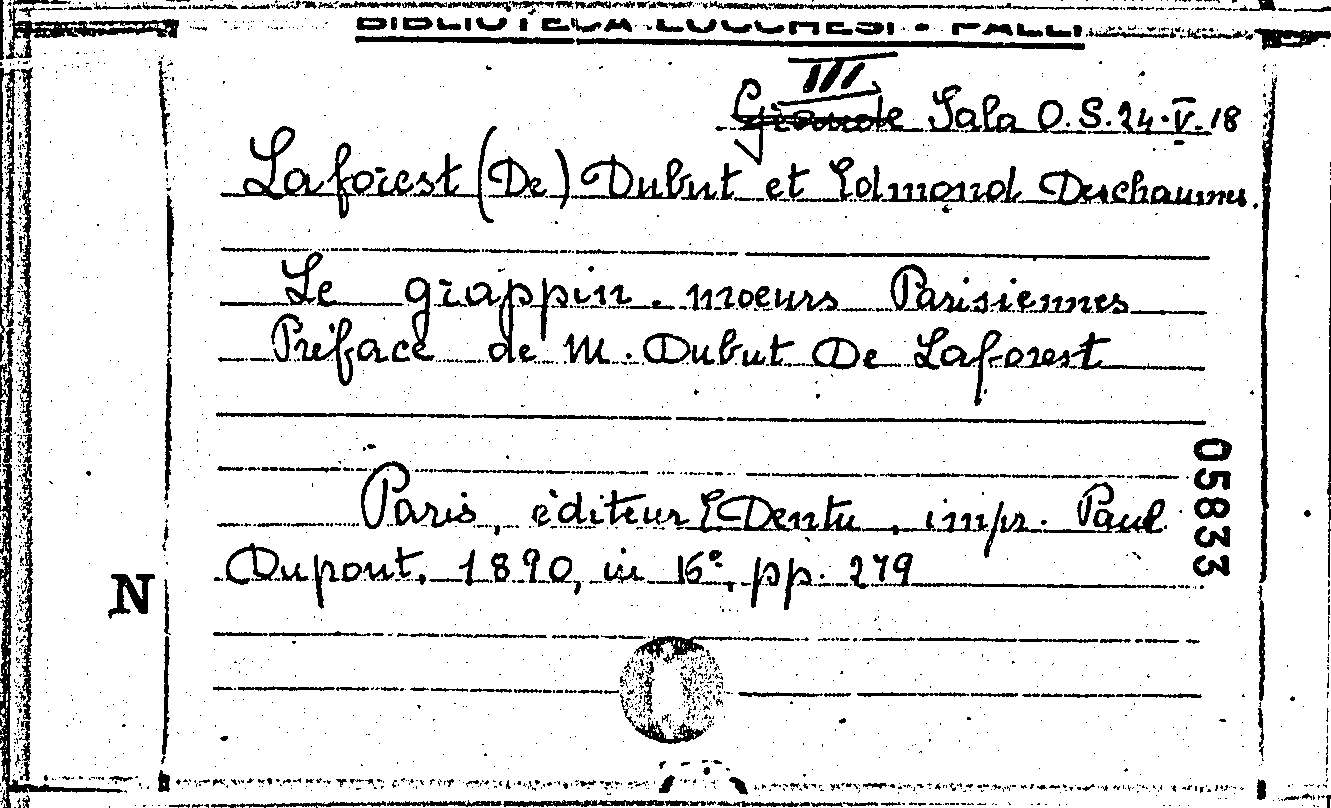 BIBLIOTECA LUCCHESI - PALLI
III
Grande Sala O.S. 24.V.18
Laforest (De) Dubut et Edmond Deschaumes.
Le grappin. moeurs Parisiennes
Préface de M. Dubut De Laforest
Paris, èditeur E Dentu, impr. Paul
Dupont, 1890, in 16°, pp. 279
N
05833